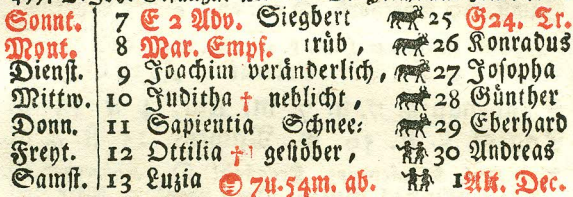 Sonnt. 7 E 2 Adv. Siegbert 25 G24. Tr.
Mont. 8 Mar. Empf. trüb, 26 Konradus
Dienst. 9 Joachim veränderlich, 27 Josopha
Mittw. 10 Juditha † neblicht, 28 Günther
Donn. 11 Sapientia Schnee: 29 Eberhard
Freyt. 12 Ottilia † gestöber, 30 Andreas
Samst. 13 Luzia 7u.54m. ab. 1 Alt. Dec.